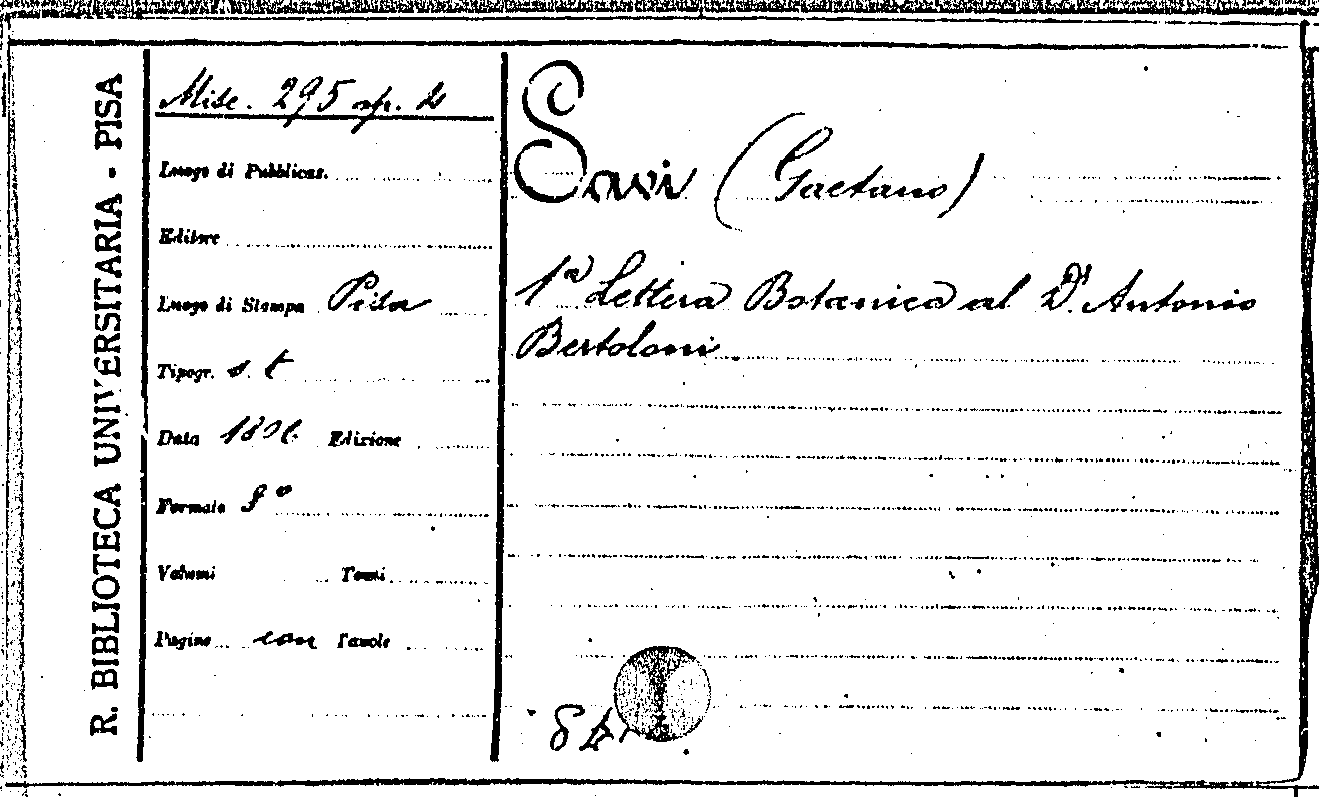 R. BIBLIOTECA UNIVERSITARIA - PISA
Misc. 295 op. 2
Luogo di Pubblicaz.
Editore
Luogo di Stampa Pisa
Tipogr. s. t
Data Edizione
Formato 8°
Volumi Tomi
Pagine con Tavole
Savi (Gaetano)
1a Lettera Botanica al Dr. Antonio
Bertoloni